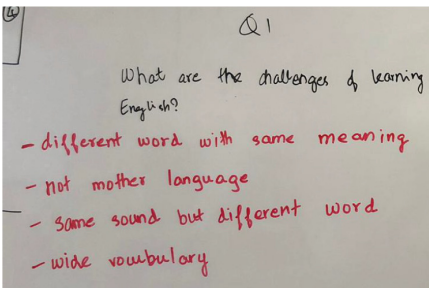 4
Q1
What are the challenges of learning
English?
- different word with same meaning
- not mother language
- same sound but different word
- wide voubulary